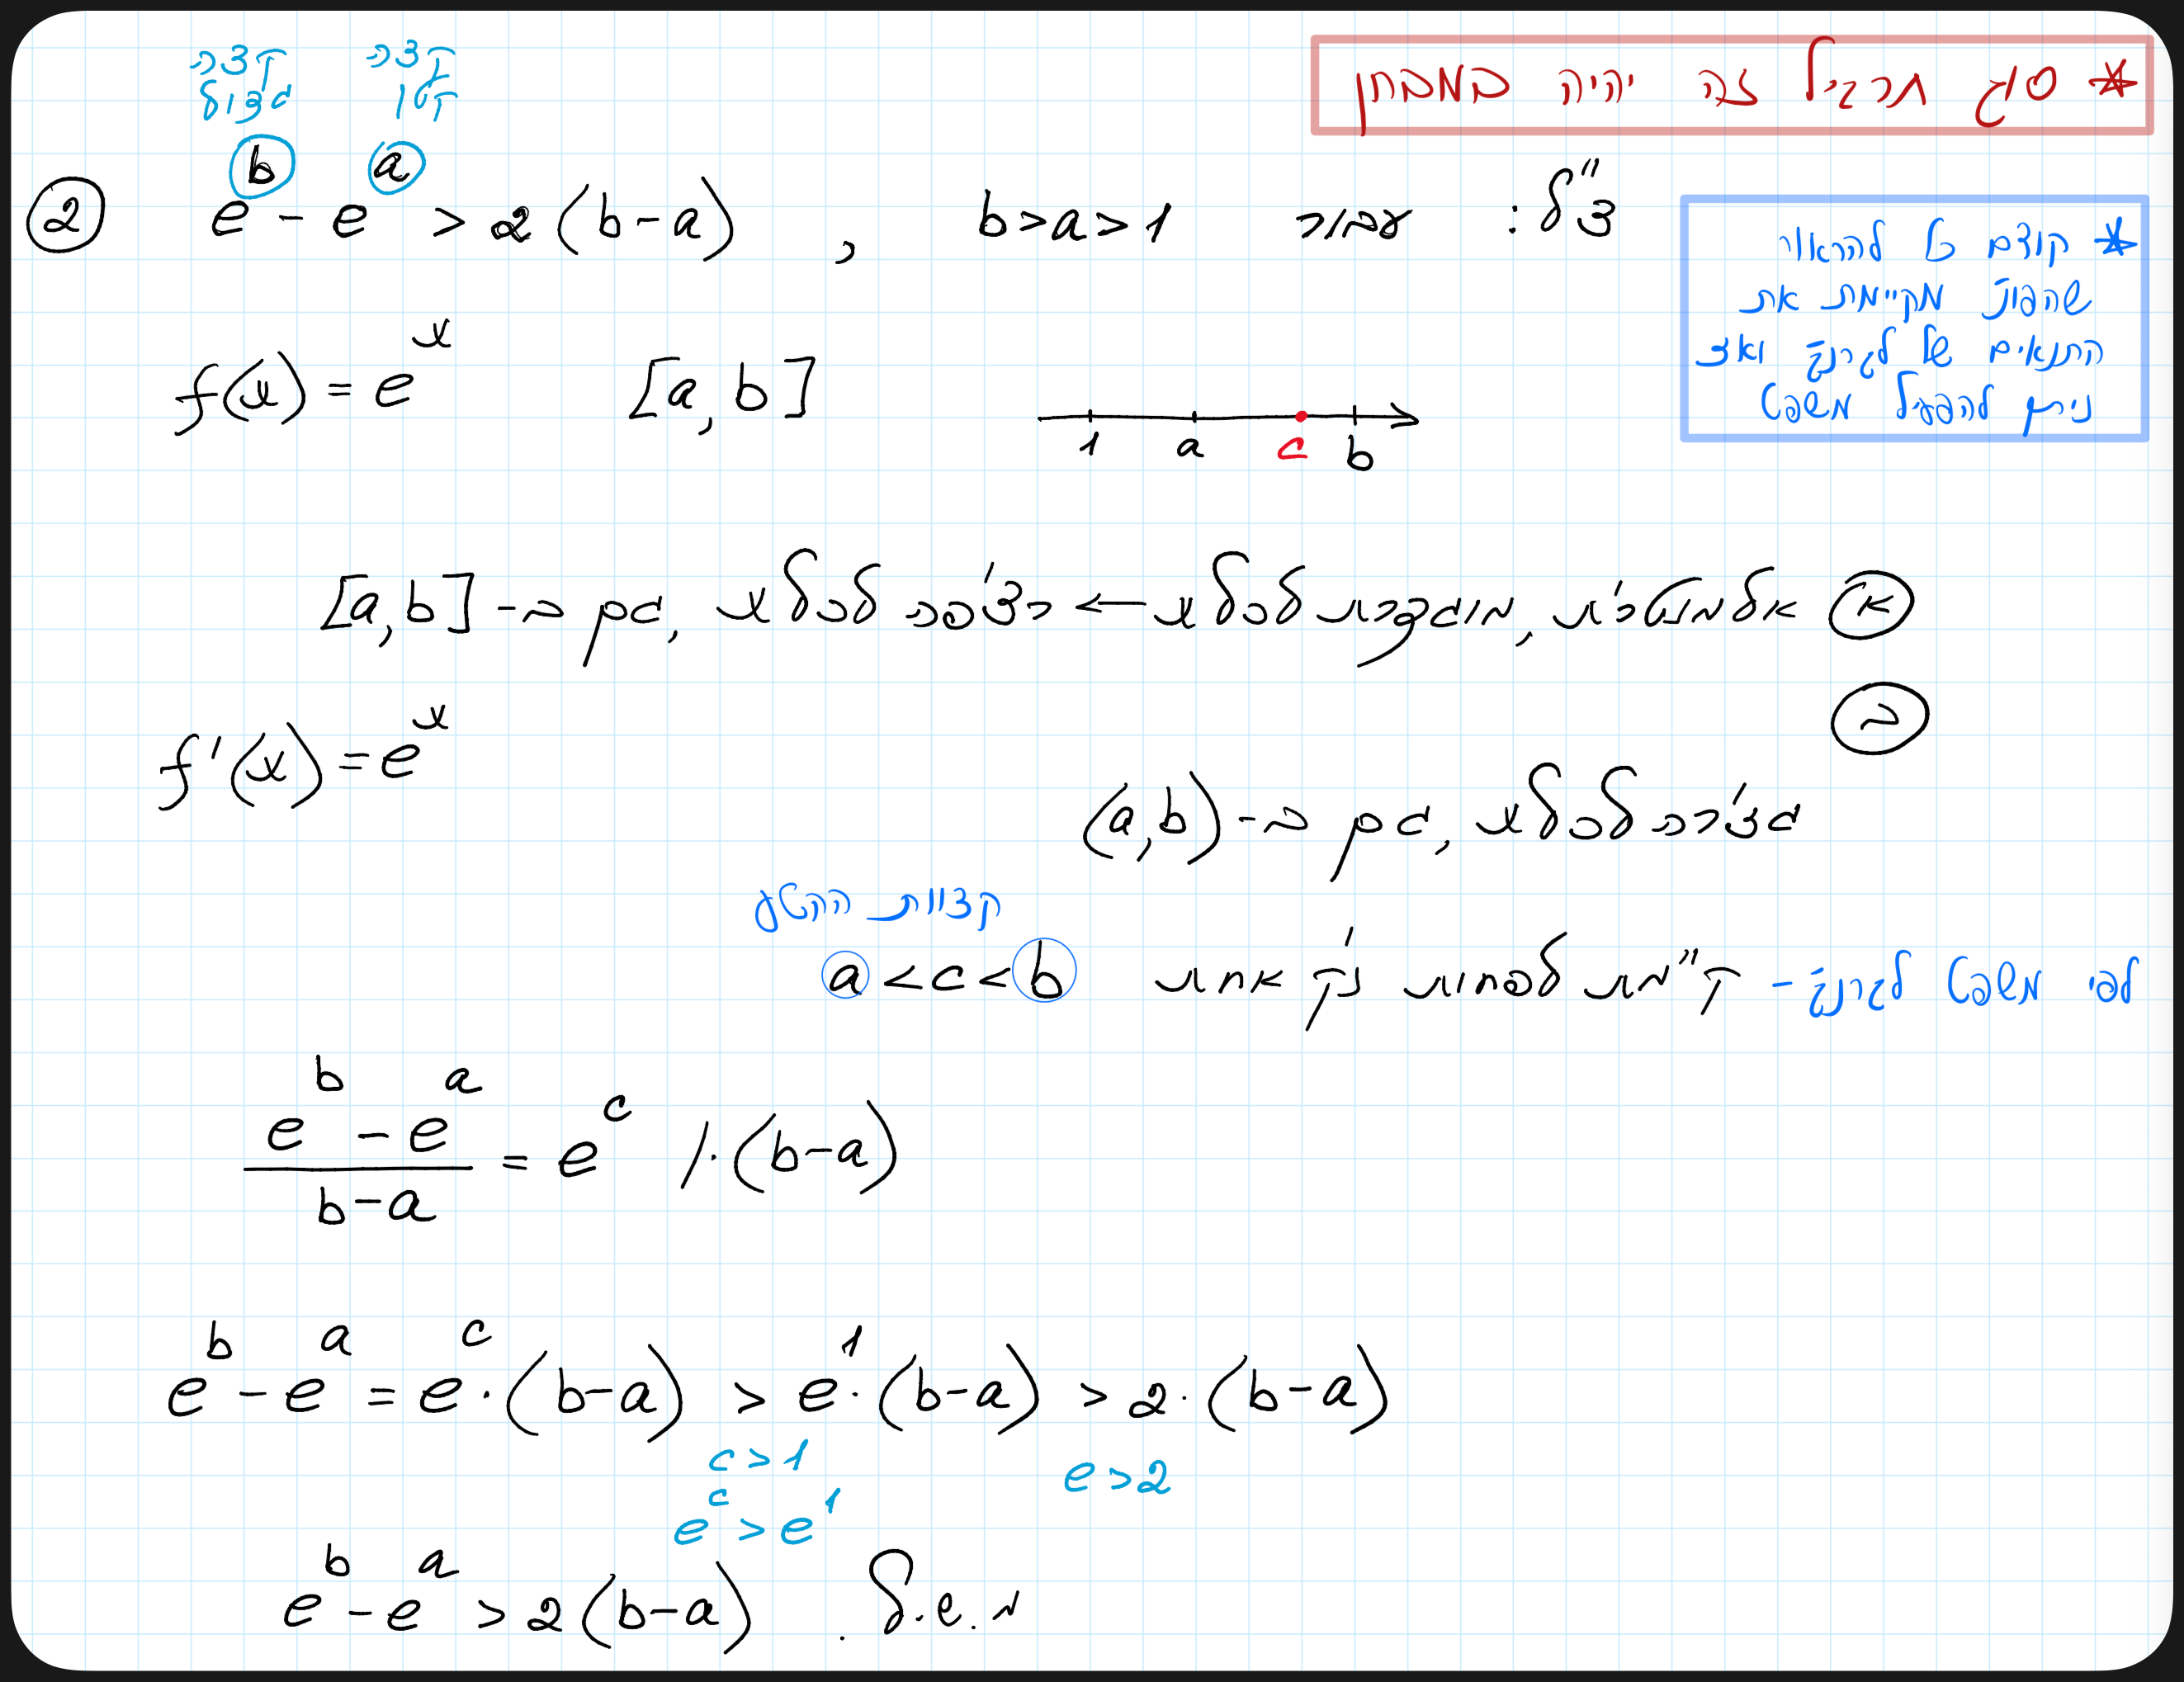 * סוג תרגיל זה יהיה במבחן
קצה קצה
גדול קטן
② e^b - e^a > 2(b-a) , b>a>1 עבור צ"ל:
* קודם כל להראות
שהפונ' מקיימת את
התנאים של לגרנז' ואז
ניתן להפעיל משפט
f(x) = e^x [a,b]
1 a c b
(א) אלמנטרית, מוגדרת לכל x ← רציפה לכל x, גם ב-[a,b]
(ב)
f'(x) = e^x
גזירה לכל x, גם ב-(a,b)
קצוות הקטע
לפי משפט לגרנז' - קיימת לפחות נק' אחת a<c<b
(e^b - e^a)/(b-a) = e^c /·(b-a)
e^b - e^a = e^c·(b-a) > e^1·(b-a) > 2·(b-a)
c>1 e>2
e^c > e^1
e^b - e^a > 2(b-a) מ.ש.ל.